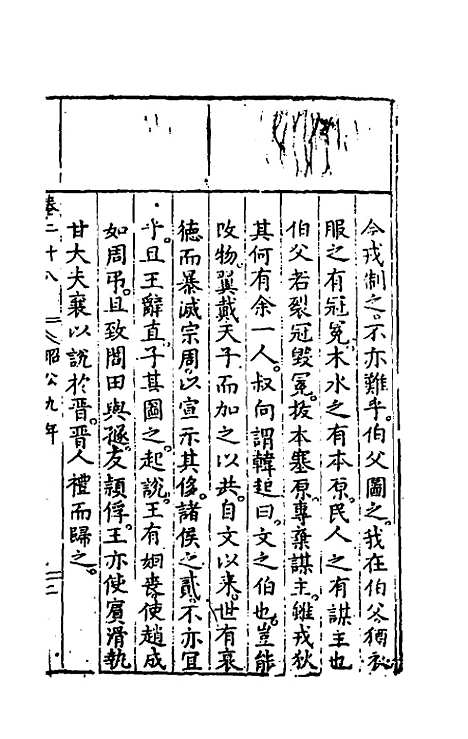 今戎制之。不亦難乎。伯父圖之。我在伯父。猶衣
服之有冠冕。木水之有本原。民人之有謀主也
伯父若裂冠毀冕。拔本塞原。專棄謀主。雖戎狄
其何有余一人。叔向謂韓起曰。文之伯也。豈能
改物。翼戴天子。而加之以共。自文以來。世有衰
德。而暴滅宗周。以宣示其侈。諸侯之貳。不亦宜
乎。且王辭直。子其圖之。起說。王有姻喪。使趙成
如周弔。且致閻田與襚。反潁俘。王亦使賓滑執
甘大夫襄以說於晉。晉人禮而歸之。
卷二十八 昭公九年 二